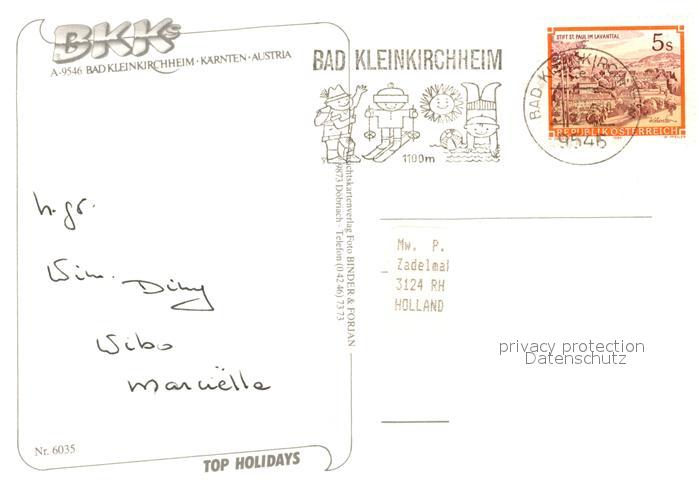 BKKs
A-9546 BAD KLEINKIRCHHEIM · KÄRNTEN · AUSTRIA
BAD KLEINKIRCHHEIM
1100m
STIFT ST. PAUL IM LAVANTTAL
5s
REPUBLIK ÖSTERREICH
9546
h. gr.
Wim. Diny
Wibo
Mariëlle
chtskartenverlag Foto BINDER & FORJAN
9873 Döbriach · Telefon (0 42 46) 73 73
Mw. P.
Zadelmak
3124 RH
HOLLAND
privacy protection
Datenschutz
Nr. 6035
TOP HOLIDAYS